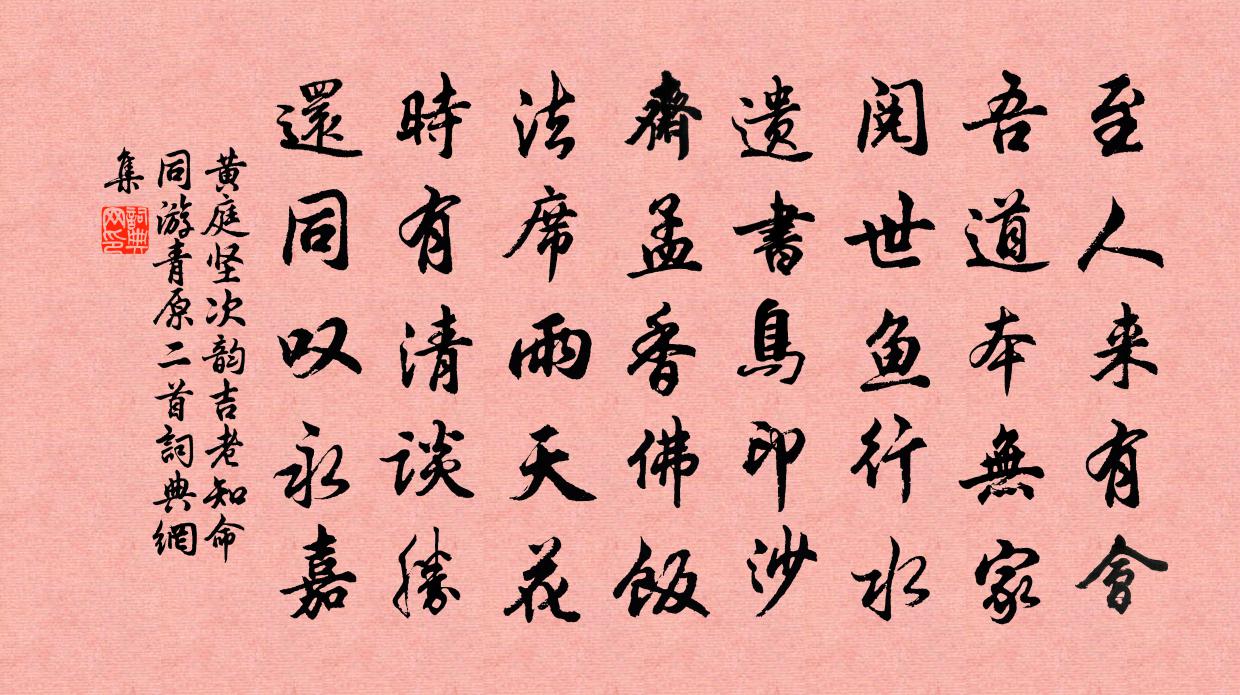 至人来有會
吾道本無家
阅世鱼行水
遗书鳥印沙
齋盂香佛飯
法席雨天花
時有清談勝
還同叹永嘉
黄庭坚次韵吉老知命
同游青原二首詞典網
集
詞典
网印